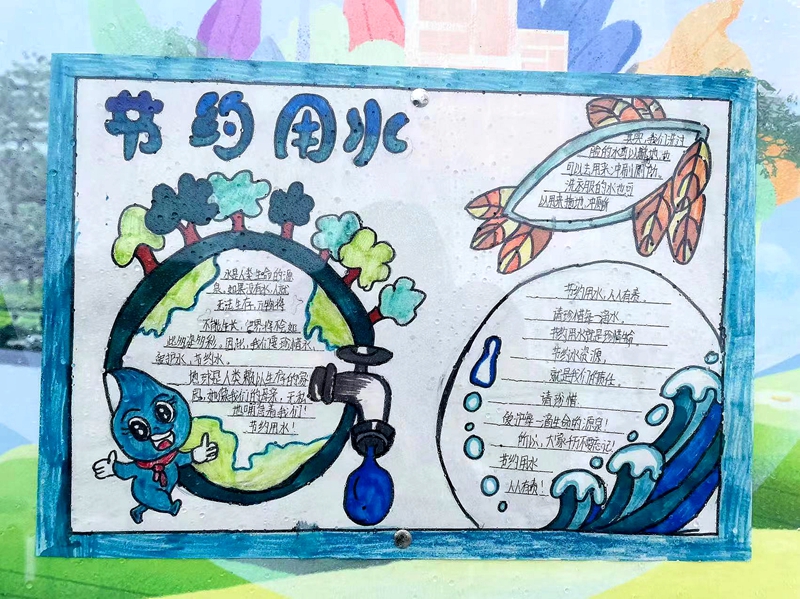 节约用水
水是人类生命的源
泉,如果没有水,人就
无法生存,万物将
不能生长,世界将不会如
此多姿多彩,因此,我们要珍惜水,
爱护水,节约水,
地球是人类赖以生存的家
园,
也哺育着我们!
节约用水!
果,我们洗过
脸的水可以
可以去用来冲厕所,
洗衣服的水也可
以用来拖地,冲厕所
节约用水,人人有责,
请珍惜每一滴水,
节约用水就是珍惜生命
节约水资源,
就是我们的责任,
请珍惜
爱护每一滴生命的源泉!
所以,大家千万不要忘记!
节约用水
人人有责!